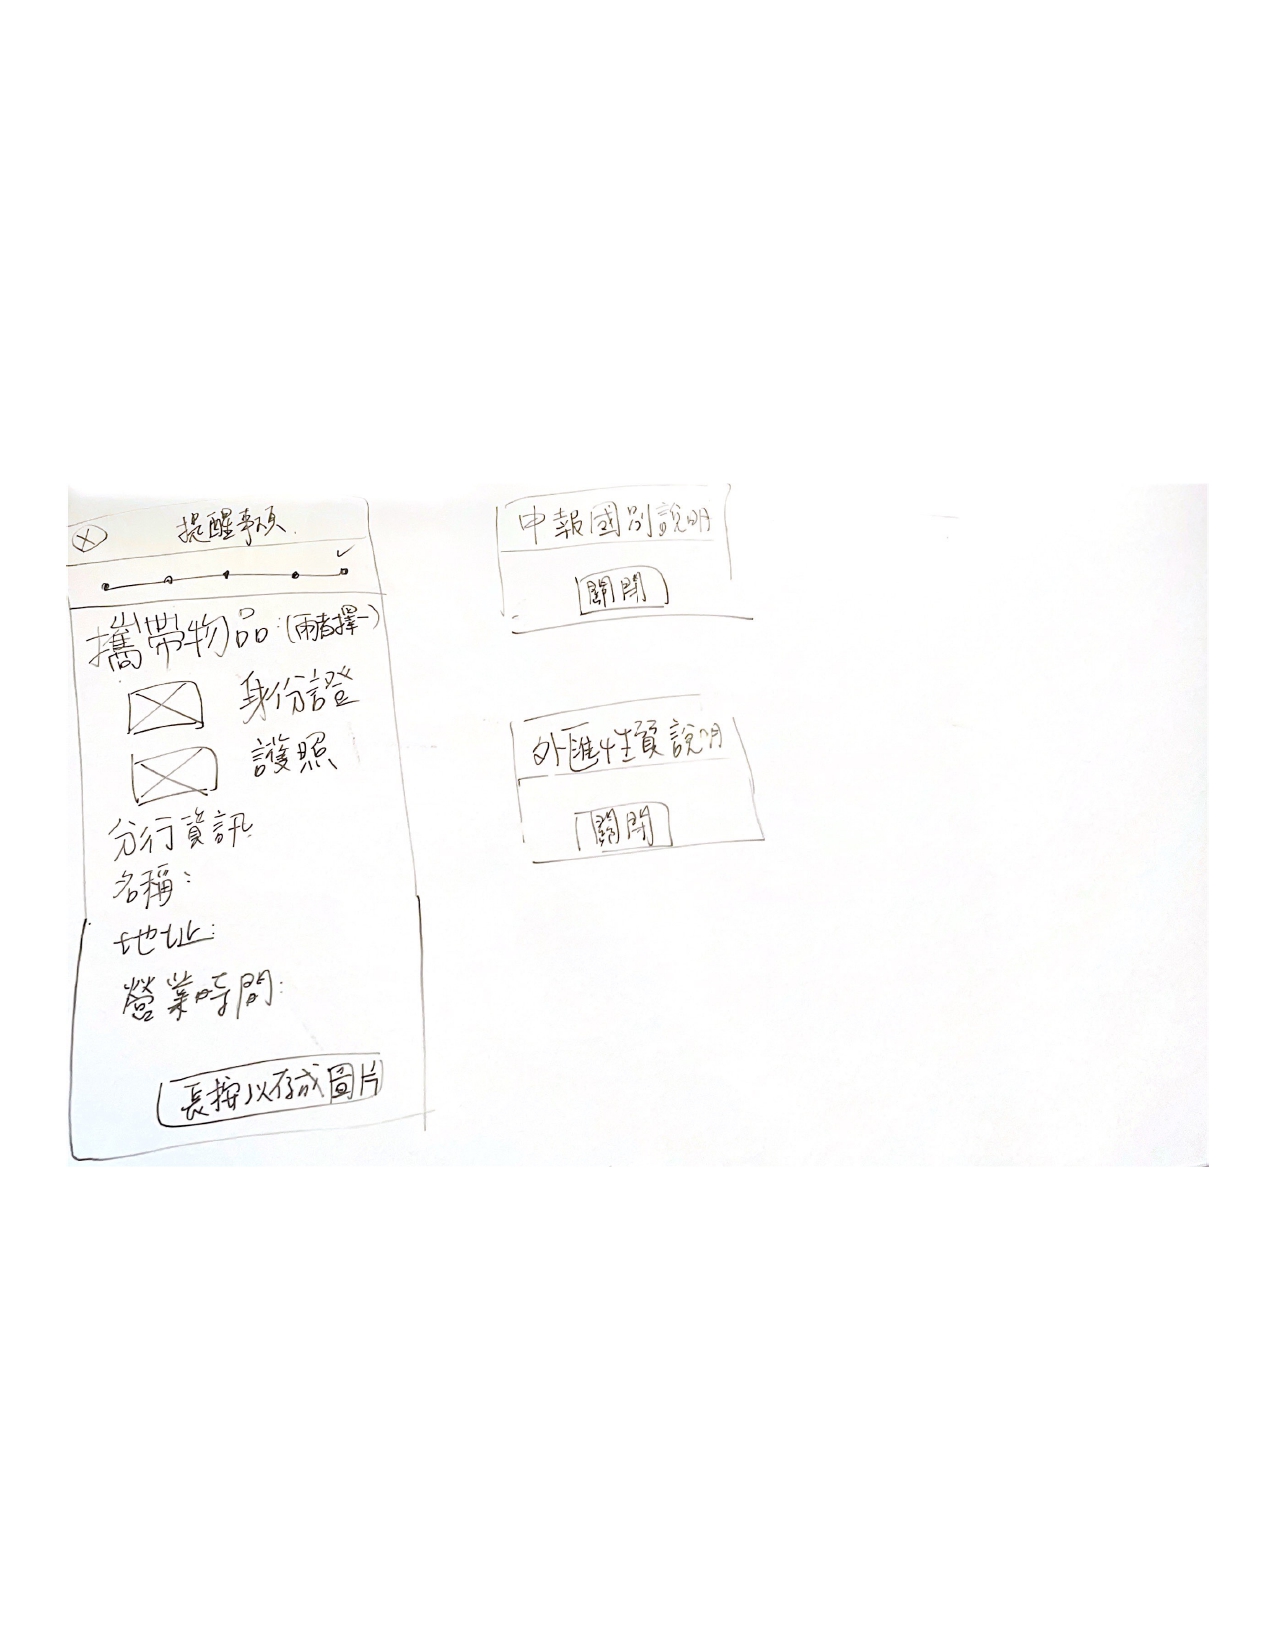 提醒事項
攜帶物品:(兩者擇一)
身份證
護照
分行資訊
名稱:
地址:
營業時間:
長按以存成圖片
申報國別說明
關閉
外匯性質說明
關閉